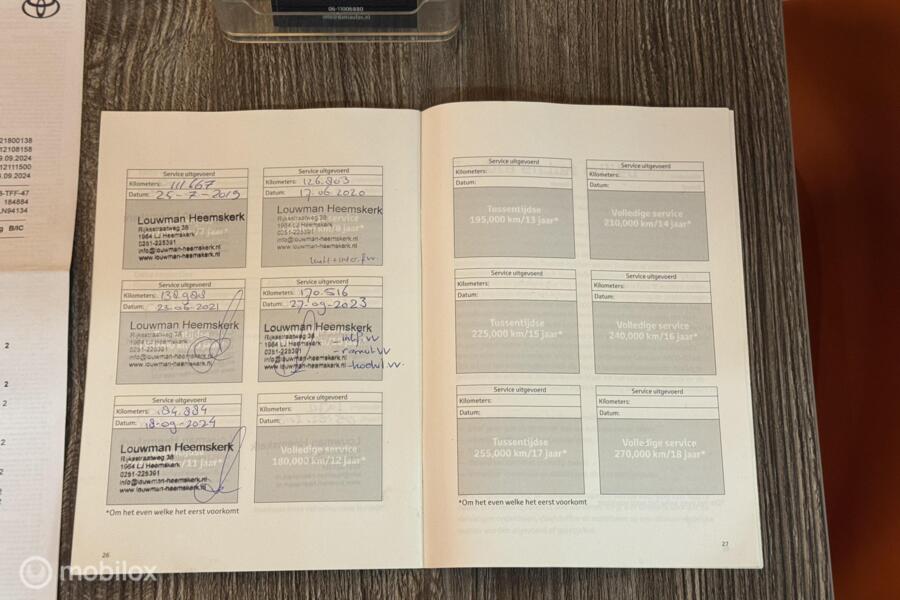 06-11006880
info@damiautos.nl
21800138
12108158
9.09.2024
12111500
9.09.2024
-TFF-47
184884
LN94134
g B/IC
2
2
2
2
Service uitgevoerd
Kilometers: 111667
Datum: 25-7-2019
Louwman Heemskerk
Rijksstraatweg 38
1964 LJ Heemskerk
0251-225391
info@louwman-heemskerk.nl
www.louwman-heemskerk.nl
Service uitgevoerd
Kilometers: 126.803
Datum: 17.06.2020
Louwman Heemskerk
Rijksstraatweg 38
1964 LJ Heemskerk
0251-225391
info@louwman-heemskerk.nl
www.louwman-heemskerk.nl
Service uitgevoerd
Kilometers: 138.988
Datum: 23-06-2021
Louwman Heemskerk
Rijksstraatweg 38
1964 LJ Heemskerk
0251-225391
info@louwman-heemskerk.nl
www.louwman-heemskerk.nl
Service uitgevoerd
Kilometers: 170.516
Datum: 27-09-2023
Louwman Heemskerk
Rijksstraatweg 38
1964 LJ Heemskerk
0251-225391
info@louwman-heemskerk.nl
www.louwman-heemskerk.nl
Service uitgevoerd
Kilometers: 184.884
Datum: 18-09-2024
Louwman Heemskerk
Rijksstraatweg 38
1964 LJ Heemskerk
0251-225391
info@louwman-heemskerk.nl
www.louwman-heemskerk.nl
Service uitgevoerd
Kilometers:
Datum:
Volledige service
180,000 km/12 jaar*
*Om het even welke het eerst voorkomt
26
Service uitgevoerd
Kilometers:
Datum:
Tussentijdse
195,000 km/13 jaar*
Service uitgevoerd
Kilometers:
Datum:
Volledige service
210,000 km/14 jaar*
Service uitgevoerd
Kilometers:
Datum:
Tussentijdse
225,000 km/15 jaar*
Service uitgevoerd
Kilometers:
Datum:
Volledige service
240,000 km/16 jaar*
Service uitgevoerd
Kilometers:
Datum:
Tussentijdse
255,000 km/17 jaar*
Service uitgevoerd
Kilometers:
Datum:
Volledige service
270,000 km/18 jaar*
*Om het even welke het eerst voorkomt
27
mobilox